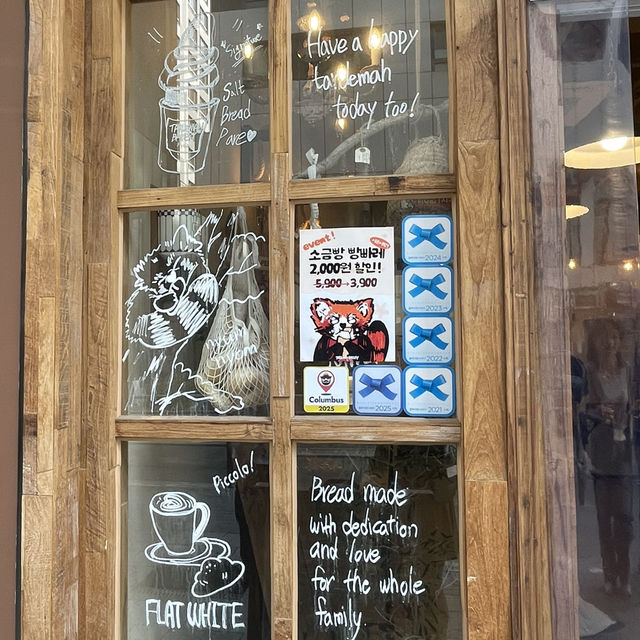 "Signature"
Salt
Bread
Pave
Have a happy
tandemah
today too!
event!
소금빵 빵빠레
2,000원 할인!
5,900→3,900
2024
2023
2022
Columbus
2025
2025
2021
Piccolo!
FLAT WHITE
Bread made
with dedication
and love
for the whole
family.